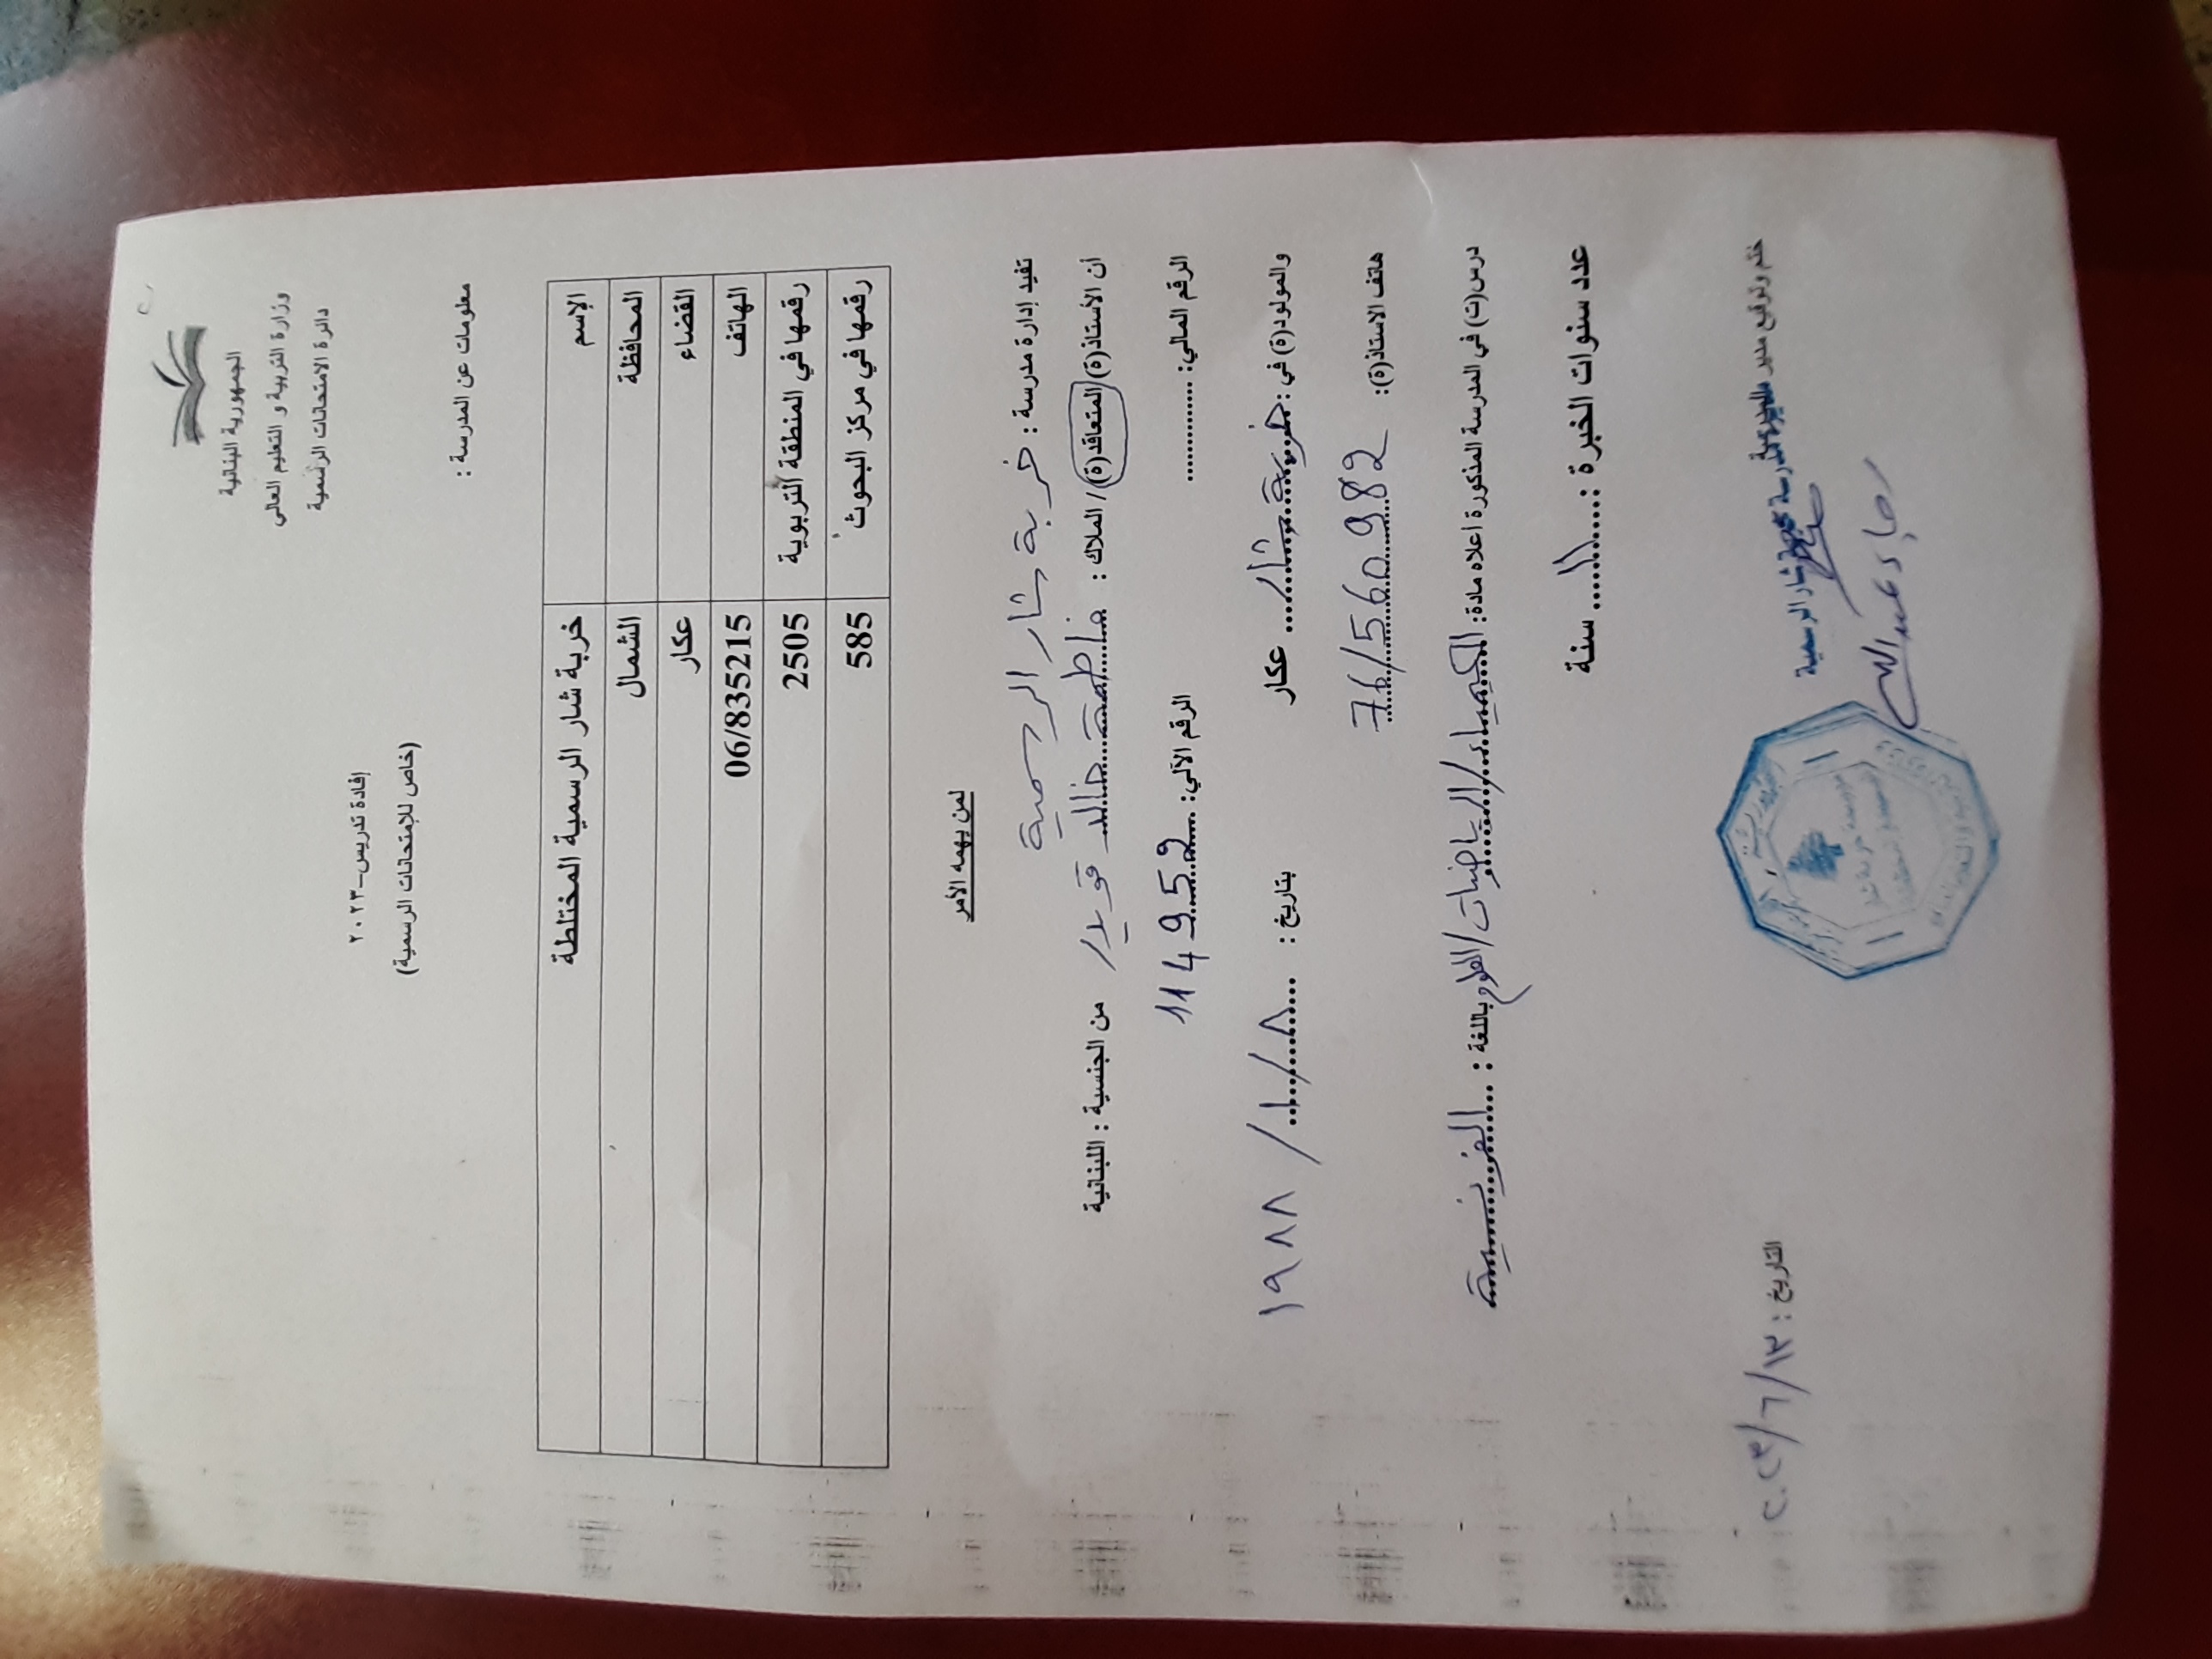 الجمهورية البنانية
وزارة التربية و التعليم العالي
دائرة الامتحانات الرسمية
إفادة تدريس-٢٠٢٣
(خاص للإمتحانات الرسمية)
معلومات عن المدرسة :
الإسم خربة شار الرسمية المختلطة
المحافظة الشمال
القضاء عكار
الهاتف 06/835215
رقمها في المنطقة التربوية 2505
رقمها في مركز البحوث 585
لمن يهمه الأمر
تفيد إدارة مدرسة : خربة شار الرسمية
أن الأستاذ(ة)/المتعاقد(ة)/ الملاك : فاطمة خالد قويدر من الجنسية : اللبنانية
الرقم المالي: ............ الرقم الآلي: 114952
والمولود(ة) في : خربة شار عكار بتاريخ : ٨/١/١٩٨٨
هاتف الاستاذ(ة): 76/560982
درس(ت) في المدرسة المذكورة اعلاه مادة: الكيمياء/الرياضيات/العلوم باللغة : الفرنسية
عدد سنوات الخبرة : ١١ سنة
ختم وتوقيع مدير المدرسة التاريخ : ١٣/٦/٢٠٢٣
شار الرسمية
رجاء عبدالله